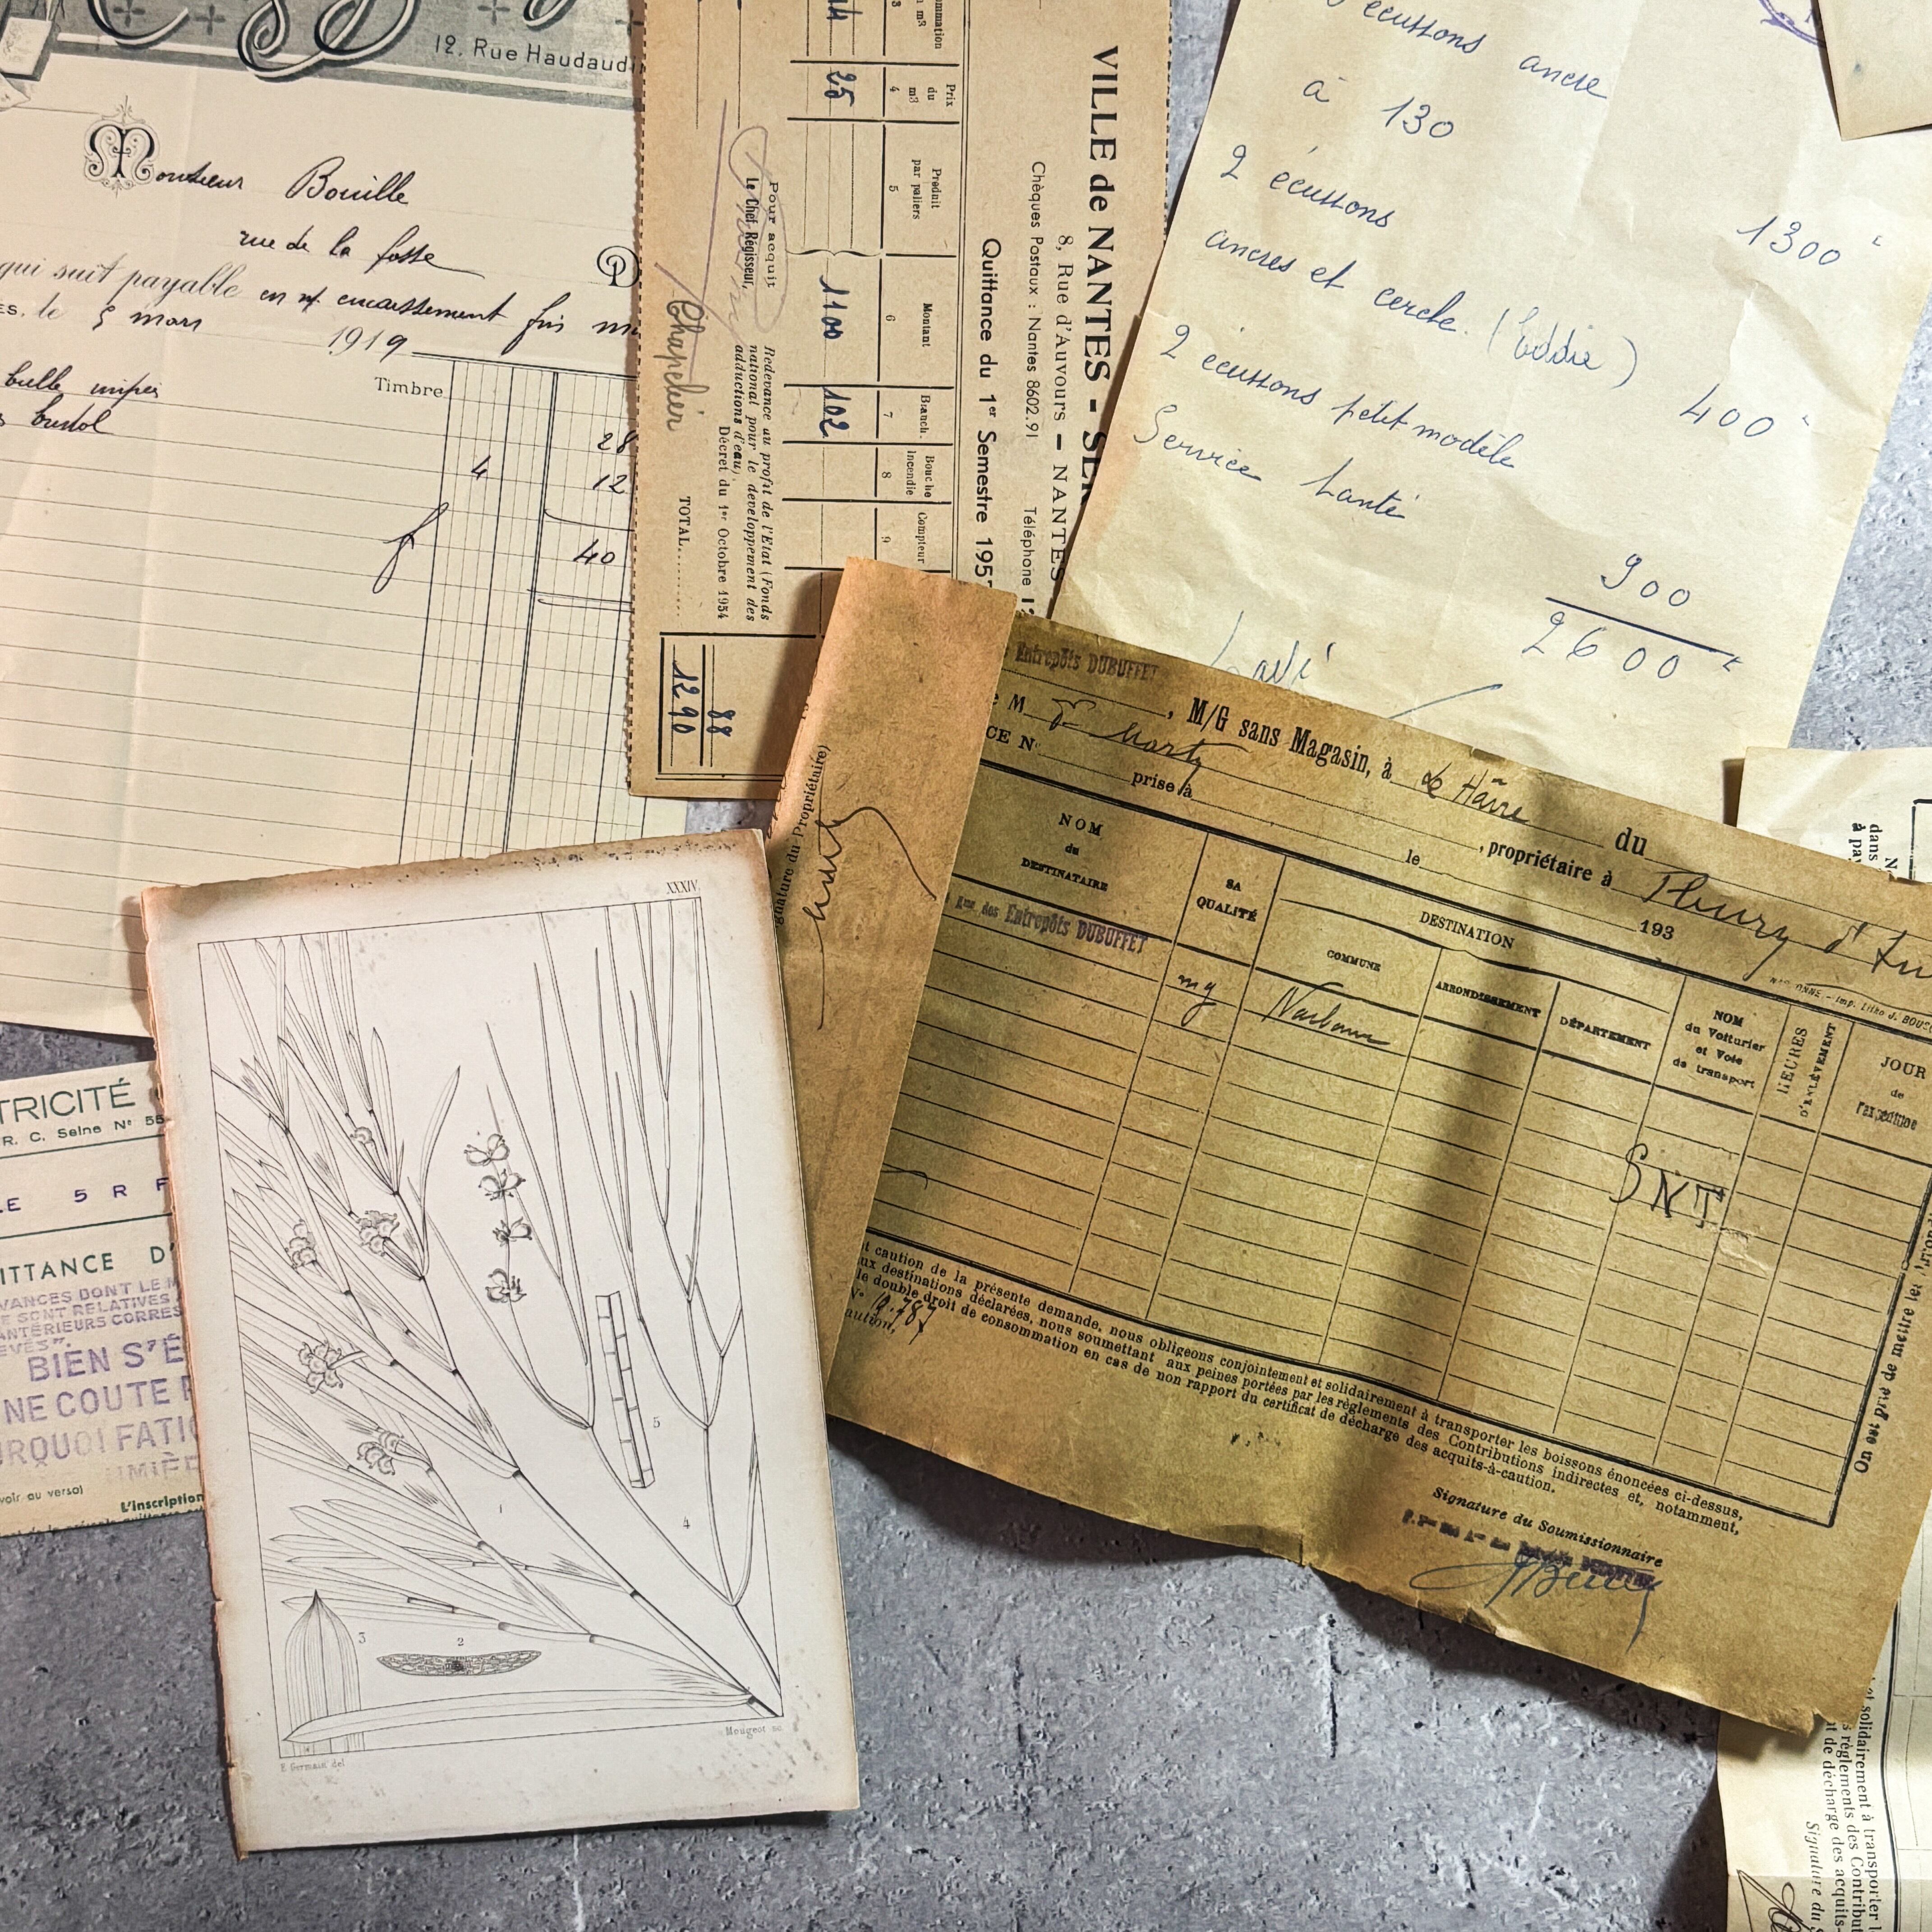 12. Rue Haudaudi
Monsieur Bouille
rue de la fosse
qui suit payable en n/ encaissement fin
le 5 mars 1919
bulle
Timbre
28
4 12
40
VILLE de NANTES -
8, Rue d'Auvours — NANTES
Chèques Postaux : Nantes 8602.91 Téléphone
Quittance du 1er Semestre 195
Prix du m3 Produit par paliers Montant Branch. Bouche Incendie Compteur
4 5 6 7 8 9
25 1100 102
Pour acquit
Le Chef Régisseur,
Chapelier
Redevance au profit de l'Etat (Fonds
national pour le développement des
adductions d'eau)
Décret du 1er Octobre 1954
88
TOTAL
1290
écussons ancre
à 130
1300
2 écussons
ancres et cercle. (Eddie)
400
2 écussons petit modèle
Service Santé
900
2600
Entrepôts DUBUFFET
, M/G sans Magasin, à Le Hâvre du
M Marty , propriétaire à Fleury d'
CE N° prise à le 193
Imp. Litho J.
NOM du DESTINATAIRE
SA QUALITÉ
DESTINATION
COMMUNE
ARRONDISSEMENT
DÉPARTEMENT
NOM du Voiturier et Voie de transport
HEURES D'ENLÈVEMENT
JOUR de l'expédition
des Entrepôts DUBUFFET
mg Narbonne
SNT
t caution de la présente demande, nous obligeons conjointement et solidairement à transporter les boissons énoncées ci-dessus,
ux destinations déclarées, nous soumettant aux peines portées par les règlements des Contributions indirectes et, notamment,
le double droit de consommation en cas de non rapport du certificat de décharge des acquits-à-caution.
N° 19.787
aution,
Signature du Soumissionnaire
On est prié de mettre les
gnature du Propriétaire)
Marty
XXXIV.
1
2
3
4
5
E Germain del
Mougeot sc
TRICITÉ
R. C. Seine N° 55
LE 5 R F
ITTANCE D'
VANCES DONT LE M
E SONT RELATIVES
ANTÉRIEURS CORRES
EVÉS".
BIEN S'É
NE COUTE P
URQUOI FATIG
UMIÈR
voir au verso)
L'inscription
dans
à pa
et solidairement à transporter l
s règlements des Contribut
t de décharge des acquits-
Signature du